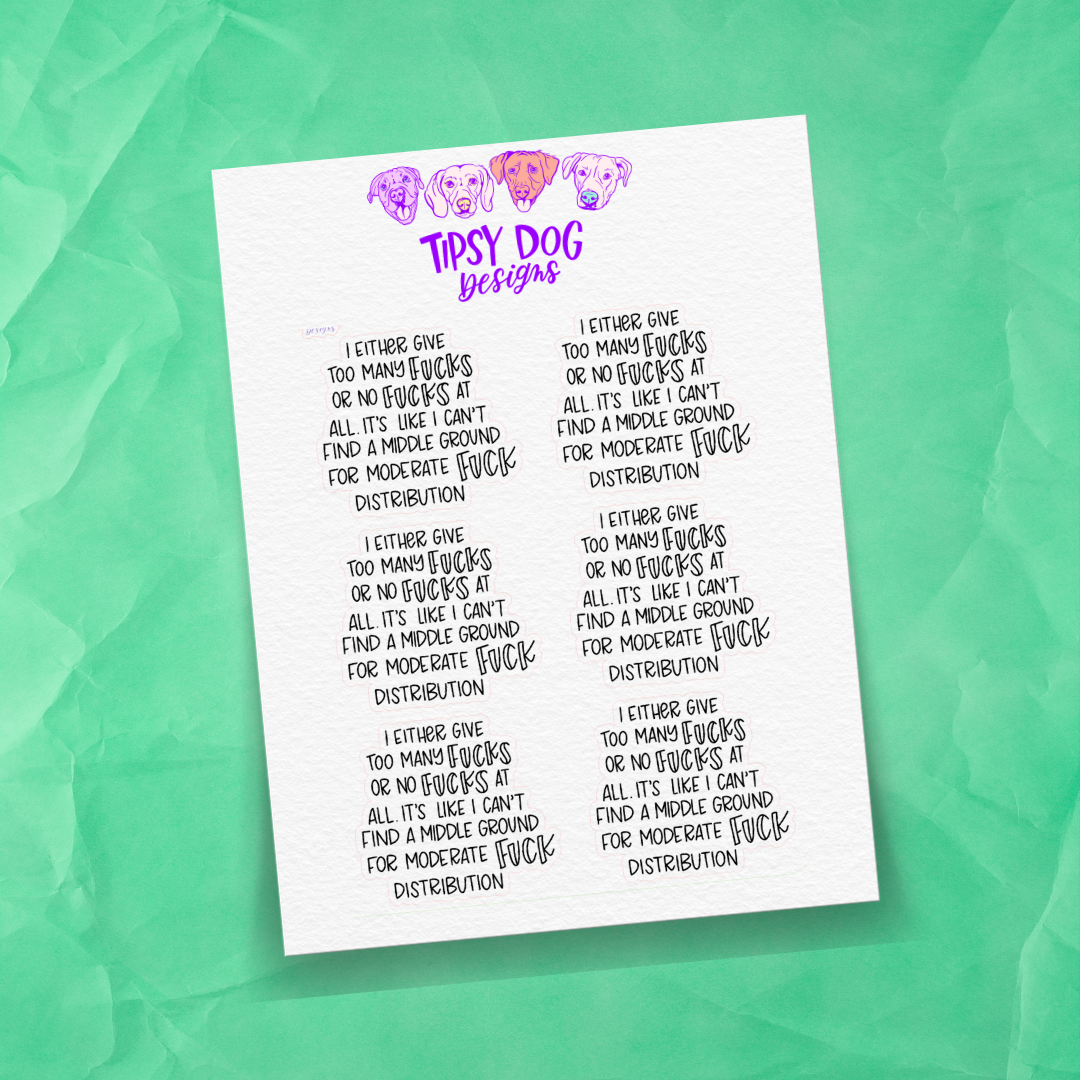 TIPSY DOG
Designs
Designs
I EITHER GIVE
TOO MANY FUCKS
OR NO FUCKS AT
ALL. IT'S LIKE I CAN'T
FIND A MIDDLE GROUND
FOR MODERATE FUCK
DISTRIBUTION
I EITHER GIVE
TOO MANY FUCKS
OR NO FUCKS AT
ALL. IT'S LIKE I CAN'T
FIND A MIDDLE GROUND
FOR MODERATE FUCK
DISTRIBUTION
I EITHER GIVE
TOO MANY FUCKS
OR NO FUCKS AT
ALL. IT'S LIKE I CAN'T
FIND A MIDDLE GROUND
FOR MODERATE FUCK
DISTRIBUTION
I EITHER GIVE
TOO MANY FUCKS
OR NO FUCKS AT
ALL. IT'S LIKE I CAN'T
FIND A MIDDLE GROUND
FOR MODERATE FUCK
DISTRIBUTION
I EITHER GIVE
TOO MANY FUCKS
OR NO FUCKS AT
ALL. IT'S LIKE I CAN'T
FIND A MIDDLE GROUND
FOR MODERATE FUCK
DISTRIBUTION
I EITHER GIVE
TOO MANY FUCKS
OR NO FUCKS AT
ALL. IT'S LIKE I CAN'T
FIND A MIDDLE GROUND
FOR MODERATE FUCK
DISTRIBUTION